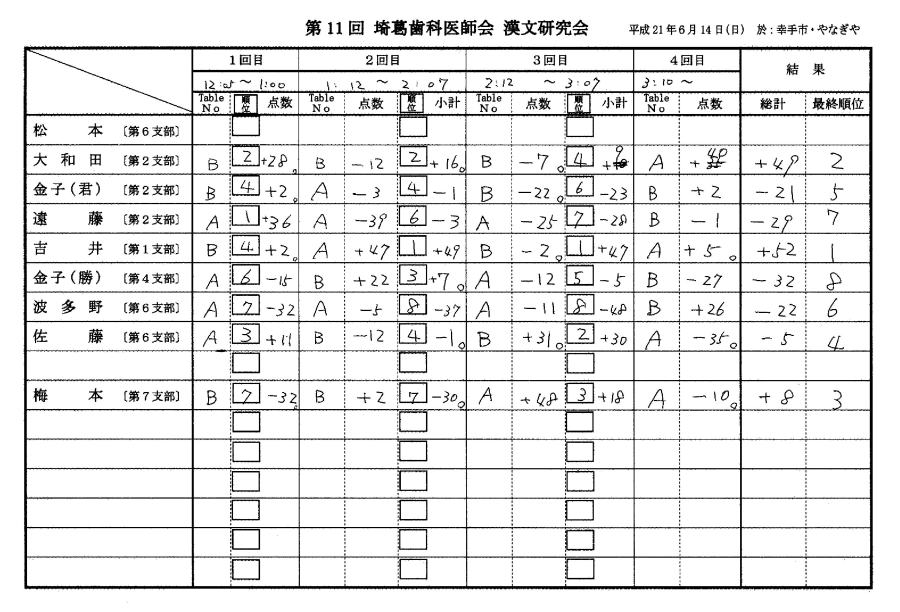 第11回 埼葛歯科医師会 漢文研究会 平成21年6月14日(日) 於:幸手市・やなぎや
1回目 2回目 3回目 4回目 結果
12:05~1:00 1:12~2:07 2:12~3:07 3:10~
Table No 順位 点数 Table No 点数 順位 小計 Table No 点数 順位 小計 Table No 点数 総計 最終順位
松本 〔第6支部〕
大和田 〔第2支部〕 B 2 +28。 B -12 2 +16。 B -7。 4 +9 A +40 +49 2
金子(君) 〔第2支部〕 B 4 +2。 A -3 4 -1 B -22。 6 -23 B +2 -21 5
遠藤 〔第2支部〕 A 1 +36 A -39 6 -3 A -25 7 -28 B -1 -29 7
吉井 〔第1支部〕 B 4 +2。 A +47 1 +49 B -2。 1 +47 A +5。 +52 1
金子(勝) 〔第4支部〕 A 6 -15 B +22 3 +7。 A -12 5 -5 B -27 -32 8
波多野 〔第6支部〕 A 7 -32 A -5 8 -37 A -11 8 -48 B +26 -22 6
佐藤 〔第6支部〕 A 3 +11 B -12 4 -1。 B +31。 2 +30 A -35。 -5 4
梅本 〔第7支部〕 B 7 -32。 B +2 7 -30。 A +48 3 +18 A -10。 +8 3